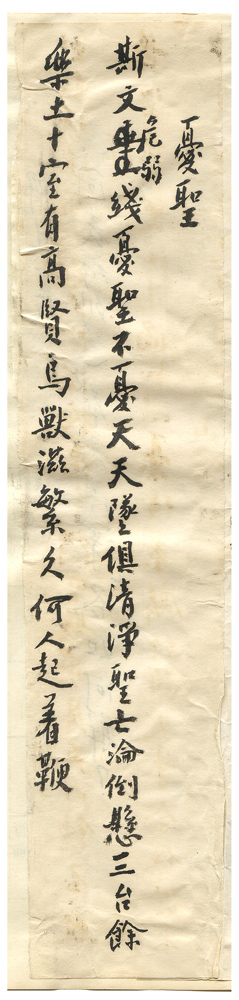 憂聖
斯文危弱綫憂聖不憂天天墜俱清淨聖亡淪倒懸三台餘
樂土十室有高賢鳥獸滋繁久何人起着鞭